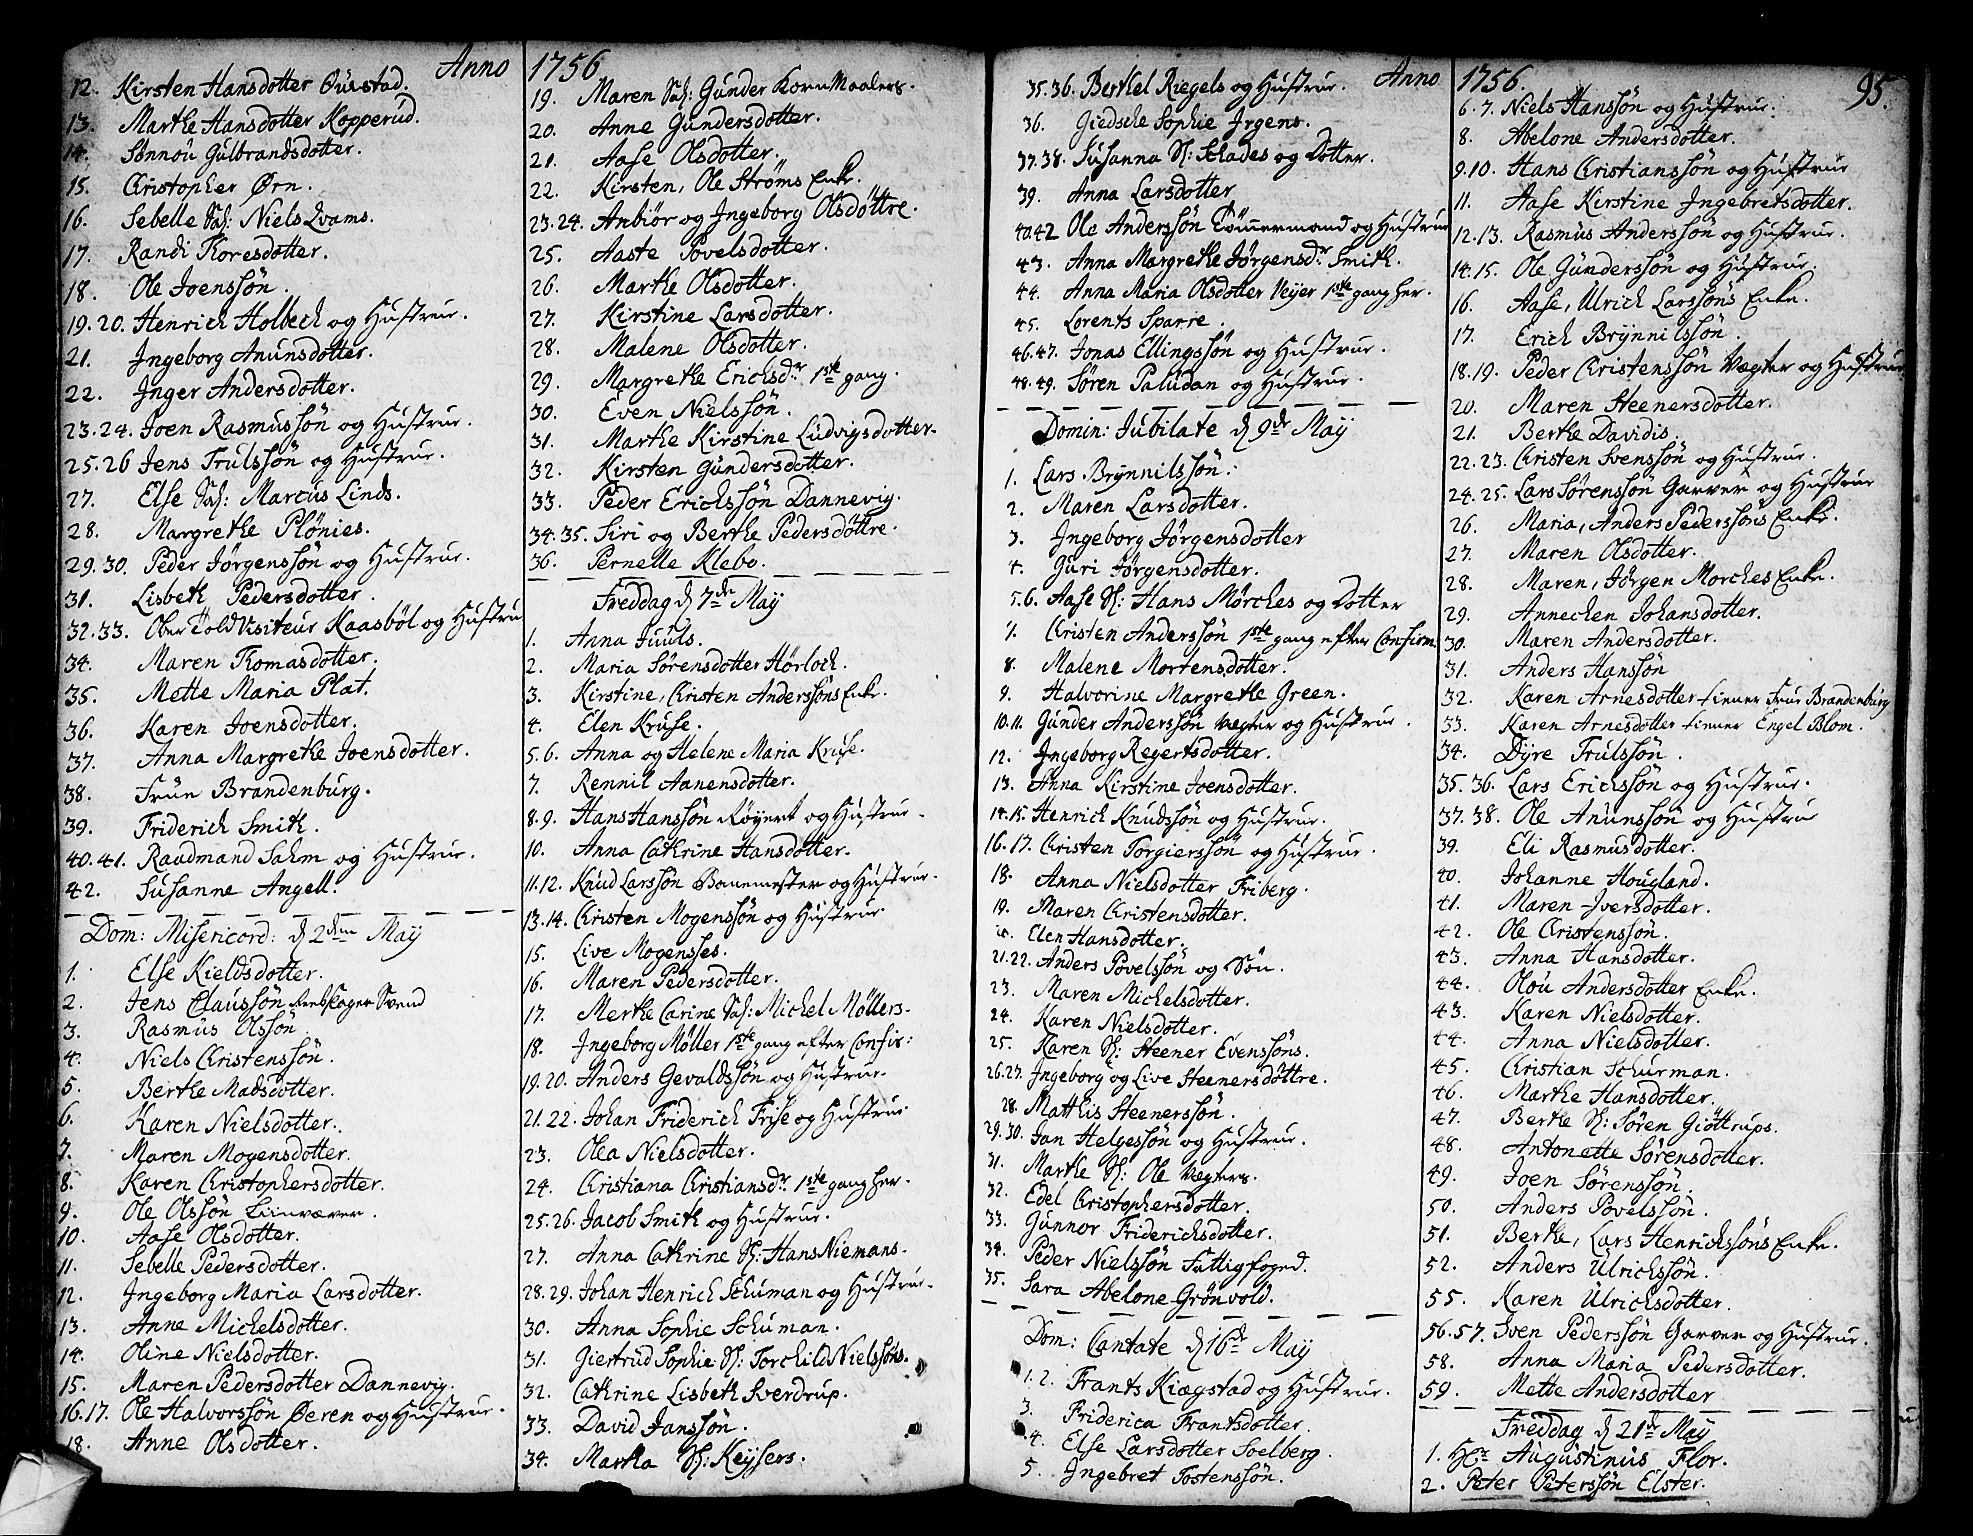 Anno 1756
12. Kirsten Hansdotter Øuestad.
13. Marthe Hansdotter Kopperud.
14. Sønnou Gulbrandsdotter.
15. Christopher Ørn.
16. Sebelle Sal: Niels Qvams.
17. Randi Thoresdotter.
18. Ole Joenssøn.
19. 20. Henrich Holbech og Hustrue.
21. Jngeborg Anunsdotter.
22. Jnger Andersdotter.
23. 24. Joen Rasmussøn og Hustrue.
25. 26 Jens Trulssøn og Hustrue.
27. Else Sal: Marcus Linds.
28. Margrethe Plønies.
29. 30. Peder Jørgenssøn og Hustrue.
31. Lisbeth Pedersdotter.
32. 33. Ober Told Visiteur Kaasbøl og Hustru
34. Maren Thomasdotter.
35. Mette Maria Plat.
36. Karen Joensdotter.
37. Anna Margrethe Joensdotter.
38. Frue Brandenburg.
39. Friderich Smith.
40. 41. Raadmand Sahm og Hustrue.
42. Susanne Angell.
Dom: Misericord: d 2den Maÿ
1. Else Kieldsdotter.
2. Jens Claussøn Svend
3. Rasmus Olssøn
4. Niels Christenssøn.
5. Berthe Madsdotter.
6. Karen Nielsdotter.
7. Maren Mogensdotter.
8. Karen Christophersdotter.
9. Ole Olssøn Linnæver.
10. Aase Olsdotter.
11. Sebelle Pedersdotter.
12. Jngeborg Maria Larsdotter.
13. Anne Michelsdotter.
14. Oline Nielsdotter.
15. Maren Pedersdotter Dannevig.
16. 17. Ole Halvorssøn Øeren og Hustrue.
18. Anne Olsdotter.
19. Maren Sal: Gunder KornMaalers.
20. Anne Gundersdotter.
21. Aase Olsdotter.
22. Kirsten, Ole Strøms Enke.
23. 24. Anbiør og Jngeborg Olsdøttre.
25. Aaste Povelsdotter.
26. Marthe Olsdotter.
27. Kirstine Larsdotter.
28. Malene Olsdotter.
29. Margrethe Erichsdr 1ste gang.
30. Even Nielssøn.
31. Marthe Kirstine Ludvigsdotter.
32. Kirsten Gundersdotter.
33. Peder Erichssøn Dannevig.
34. 35. Siri og Berthe Pedersdøttre.
36. Pernelle Klebo.
Freddag d 7de Maÿ
1. Anna Juuls.
2. Maria Sørensdotter Hørloch.
3. Kirstine, Christen Anderssøns Enke.
4. Elen Kruse.
5. 6. Anna og Helene Maria Kruse.
7. Rennil Aanensdotter.
8. 9. Hans Hanssøn Røyert og Hustrue.
10. Anna Cathrine Hansdotter.
11. 12. Knud Larssøn Bommester og Hustrue.
13. 14. Christen Mogenssøn og Hustrue
15. Live Mogenses.
16. Maren Pedersdotter.
17. Merthe Carine Sal: Michel Møllers.
18. Jngeborg Møller 1ste gang efter Confir:
19. 20. Anders Gevaldssøn og Hustrue.
21. 22. Johan Friderich Frise og Hustrue.
23. Olea Nielsdotter.
24. Christiana Christiansdr 1ste gang her.
25. 26. Jacob Smith og Hustrue.
27. Anna Cathrine Sl: Hans Niemans.
28. 29. Johan Henrich Schuman og Hustrue.
30. Anna Sophie Schuman.
31. Giertrud Sophie Sl: Torchild Nielssøns.
32. Cathrine Lisbeth Sverdrup.
33. David Janssøn.
34. Martha Sl: Keysers.
Anno 1756. 95.
35. 36. Berthel Riegels og Hustrue.
36. Giedsche Sophie Jrgens.
37. 38. Susanna Sl: Schades og Dotter.
39. Anna Larsdotter
40. 42 Ole Anderssøn Tømmermand og Hustrue
43. Anna Margrethe Jørgensdr Smith.
44. Anna Maria Olsdotter Veyer 1ste gang her.
45. Lorents Sparre.
46. 47. Jonas Ellingssøn og Hustrue.
48. 49. Søren Paludan og Hustrue.
Domin: Jubilate d 9de Maÿ
1. Lars Brynnilssøn.
2. Maren Larsdotter.
3. Jngeborg Jørgensdotter
4. Guri Jørgensdotter.
5. 6. Aase Sl: Hans Mørches og Dotter
7. Christen Anderssøn 1ste gang efter Confirm
8. Malene Mortensdotter.
9. Halvorine Margrethe Green.
10. 11. Gunder Anderssøn Vegter og Hustrue.
12. Jngeborg Regertsdotter.
13. Anna Kirstine Joensdotter.
14. 15. Henrich Knudssøn og Hustrue.
16. 17. Christen Torgierssøn og Hustrue.
18. Anna Nielsdotter Friberg.
19. Maren Christensdotter.
Elen Hansdotter.
21. 22. Anders Povelssøn og Søn.
23. Maren Michelsdotter.
24. Karen Nielsdotter.
25. Karen Sl: Steener Evenssøns.
26. 27. Jngeborg og Live Steenersdøttre.
28. Matthis Steenerssøn.
29. 30. Jan Helgessøn og Hustrue.
31. Marthe Sl: Ole Vegters.
32. Edel Christophersdotter.
33. Gunnor Friderichsdotter.
34. Peder Nielssøn Fattigfoged.
35. Sara Abelone Grønvold.
Dom: Cantate d 16de Maÿ
1. 2. Frants Kiægstad og Hustrue.
3. Friderica Frantsdotter.
4. Else Larsdotter Soelberg.
5. Jngebret Tostenssøn.
6. 7. Niels Hanssøn og Hustrue.
8. Abelone Andersdotter.
9. 10. Hans Christianssøn og Hustrue
11. Aase Kirstine Jngebretsdotter.
12. 13. Rasmus Anderssøn og Hustrue.
14. 15. Ole Gunderssøn og Hustrue.
16. Aase, Ulrich Larssøns Enke.
17. Erich Brynnilssøn.
18. 19. Peder Christenssøn Vegter og Hustrue
20. Maren Steenersdotter.
21. Berthe Davidis
22. 23. Christen Svenssøn og Hustrue.
24. 25. Lars Sørenssøn Garver og Hustrue
26. Maria, Anders Pederssøns Enke.
27. Maren Olsdotter.
28. Maren, Jørgen Morches Enke.
29. Annechen Johansdotter.
30. Maren Andersdotter.
31. Anders Hanssøn
32. Karen Arnesdotter tienner Frue Brandenburg
33. Karen Arnesdotter tienner Engel Blom.
34. Dyre Trulssøn.
35. 36. Lars Erichssøn og Hustrue.
37. 38. Ole Anunssøn og Hustrue
39. Eli Rasmusdotter.
40. Johanne Hougland.
41. Maren Jversdotter.
42. Ole Christenssøn.
43. Anna Hansdotter.
44. Olou Andersdotter Enke.
43. Karen Nielsdotter.
44. Anna Nielsdotter.
45. Christian Schurman.
46. Marthe Hansdotter.
47. Berthe Sl: Søren Giøttrups.
48. Antonette Sørensdotter.
49. Joen Sørenssøn.
50. Anders Povelssøn.
51. Berthe, Lars Henrichssøns Enke.
52. Anders Ulrichssøn.
55. Karen Ulrichsdotter.
56. 57. Sven Pederssøn Garver og Hustrue.
58. Anna Maria Pedersdotter.
59. Mette Andersdotter
Freddag d 21de Maÿ
1. Hr Augustinus Flor.
2. Peter Peterssøn Elster.